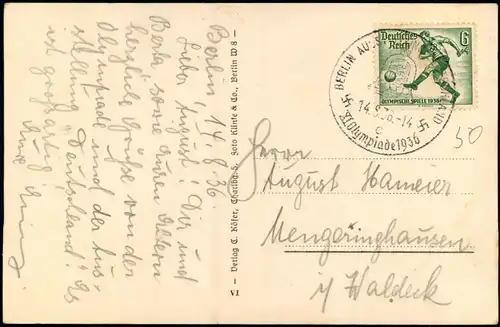 Berlin, 14.8.36
Lieber August! Dir und
Berta sowie Euren Eltern
herzliche Grüsse von der
Olympiade und der Aus-
stellung „Deutschland“. Es
ist großartig!
VI – Verlag C. Köfer, Foto Klinke & Co., Berlin W 8 –
Deutsches
Reich
6
OLYMPISCHE SPIELE 1936
BERLIN
14.8.36.-14
c
XI. Olympiade 1936
50
Herrn
August Hameier
Mengeringhausen
i/ Waldeck